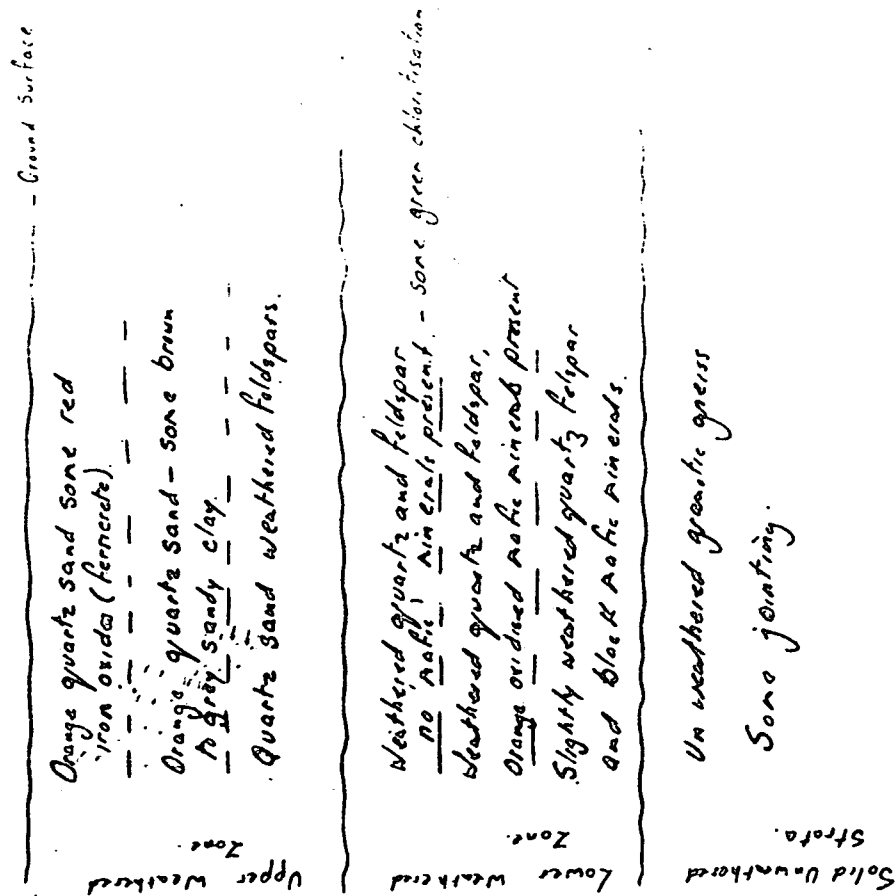 - Ground Surface
Upper Weathered
Zone.
Orange quartz sand some red
iron oxides (ferricrete)
Orange quartz sand - some brown
to grey sandy clay.
Quartz sand weathered feldspars.
Lower Weathered
Zone.
Weathered quartz and feldspar
no mafic minerals present. - some green chloritisation
Weathered quartz and feldspar,
Orange oxidised mafic minerals present
Slightly weathered quartz felspar
and black mafic minerals.
Solid Unweathered
Strata.
Unweathered granitic gneiss
Some jointing.